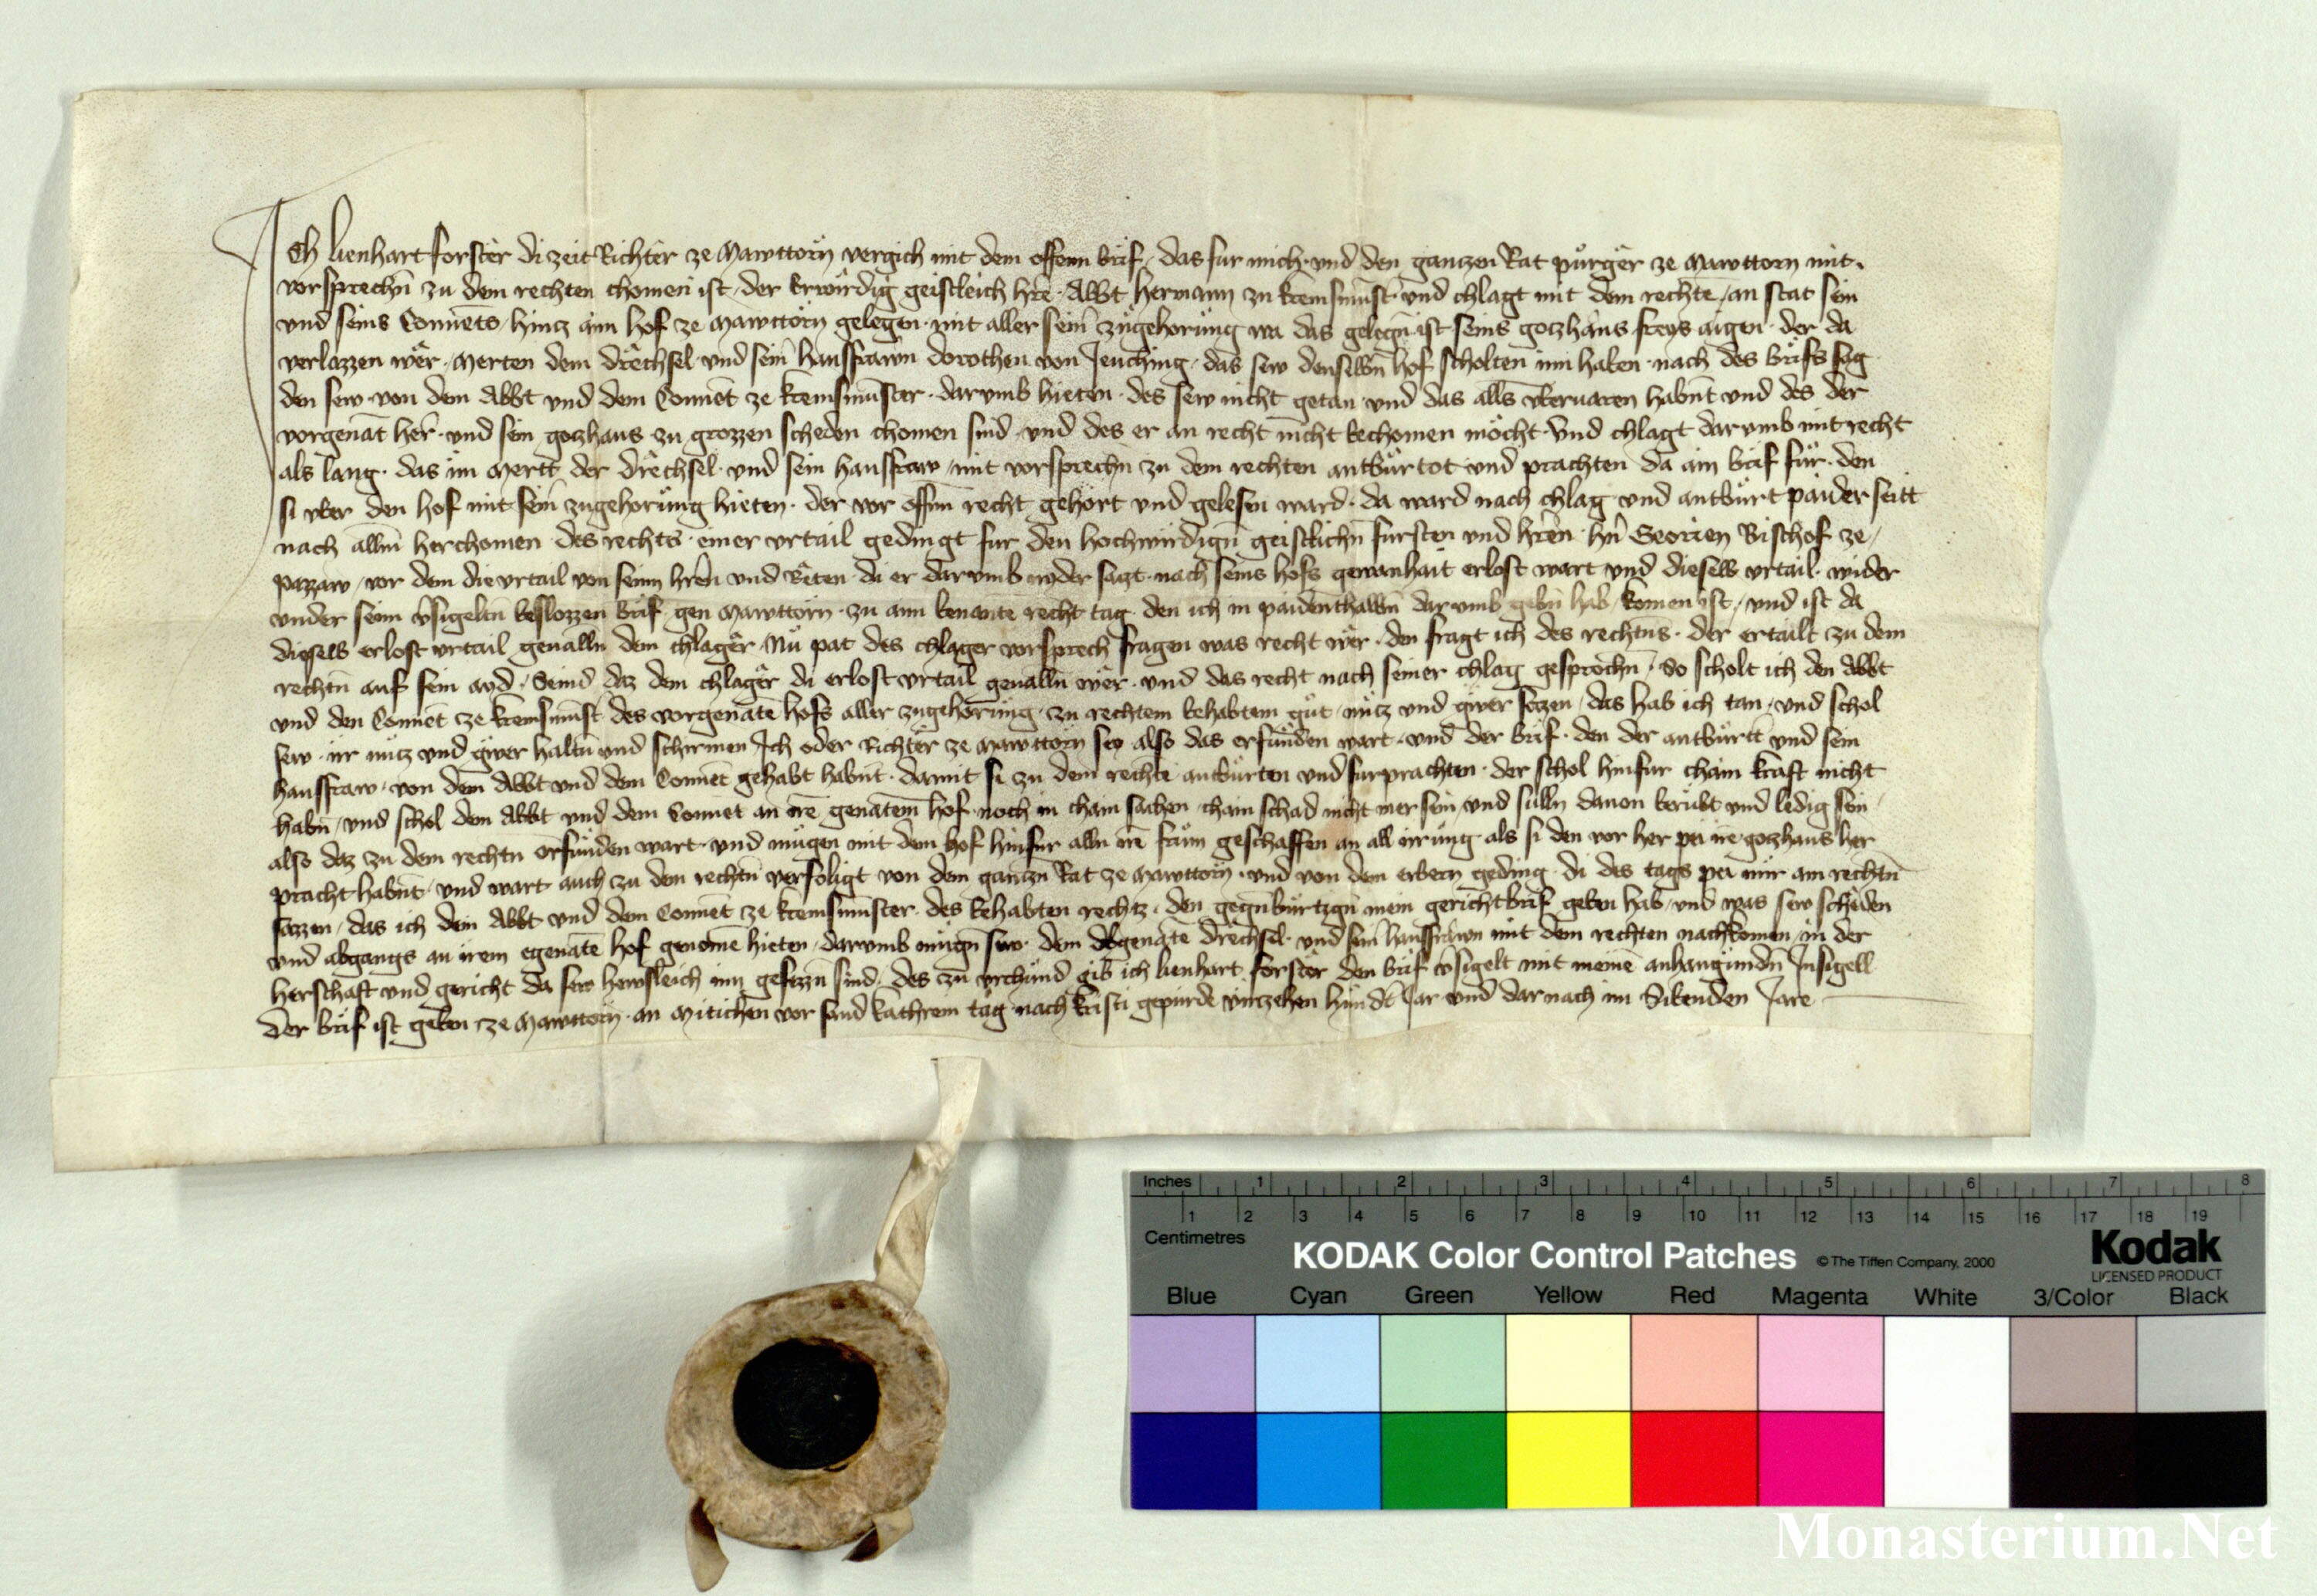 Ich lienhart forster di zeit Richter ze Mawttorn vergich mit dem offenn brif das fur mich und den ganczen Rat purger ze Mawttorn mit
vorsprechn zu dem rechten chomen ist der Erwirdig geistleich hre Abbt Hermann zu kremsmunst und chlagt mit dem rechte an stat sein
und seins Conuets hincz aim hof ze Mawttorn gelegen mit aller sein zugehorung wa das gelegn ist seins goczhaus freys aigen der da
verlazzen wer Merten dem drechsel und sein hausfrawn dorothen von Jeuching das sew denselbn hof scholten inn haben nach des brifs sag
den sew von dem Abbt und dem Conuet ze kremsmunster darumb hieten des sew nicht getan und das alls vberuaren habnt und des der
vorgenat her und sein goczhaus zu grozzen scheden chomen sind und des er an recht nicht bechomen mocht und chlagt darumb mit recht
als lang das im Mertt der drechsel und sein hausfraw mit vorsprechn zu dem rechten antburtot und prachten da ain brif fur den
si vber den hof mit sein zugehorung hieten der vor offnn recht gehort und gelesen ward da ward nach chlag und antburt paider seitt
nach allm herchomen des rechts einer vrtail gedingt fur den hochwirdign geistlichn fursten und hren hrn Georien Bischof ze
pazzaw vor dem die vrtail von seinn hren und Reten di er darumb nyder sagt nach seins hofs gewanhait erlost wart und dieselb vrtail wider
under seinn vsigeltn beslozzen brif gen Mawttorn zu aim benante recht tag den ich in paidenthalbn darumb gebn hab komen ist und ist da
dieselb erlost vrtail geualln dem chlager Nu pat des chlager vorsprech fragen was recht wer den fragt ich des rechtns der ertailt zu dem
rechtn auf sein ayd Seind daz dem chlager di erlost vrtail geualln wer und das recht nach seiner chlag gesprochn so scholt ich den Abbt
und den Conuet ze kremsmunst des vorgenate hofs aller zugehorung zu rechtem behabtem gut nucz und gwer seczen das hab ich tan und schol
sew irr nucz und gwer haltn und schirmen Ich oder Richter ze Mawttorn sey also das erfunden wart und der brif den der antburtt und sein
hausfraw von dem Abbt und dem Conuet gehabt habnt damit si zu dem rechte antburten und furprachten der schol hinfur chain kraft nicht
habn und schol dem Abbt und dem Conuet an ire genatem hof noch in chain sachen chain schad nicht mer sein und sulln dauon berubt und ledig sein
also daz zu dem rechtn erfunden wart und mugen mit dem hof hinfur alln ire frum geschaffen an all irrung als si den vor her pei ire goczhaus her
pracht habnt und wart auch zu den rechtn verfoligt von dem ganczn Rat ze Mawttorn und von dem erbern geding di des tags pei mir am rechtn
sazzen das ich dem Abbt und dem Conuet ze kremsmunster des behabten rechtz den gegnburtign mein gerichtbrif geben hab und was sew scheden
und abgangs an irem egenate hof genome hieten darumb mugn sew dem obgenate drechsel und sein hausfrawn mit dem rechten nachkomen in der
herschaft und gericht da sew hewsleich inn gesezzn sind des zu vrchund gib ich lienhart forster den brif vsigelt mit meine anhangundn Insigell
der brif ist geben ze Mawttorn an Mitichen vor sand kathrein tag nach kristi gepurde virczehen hundt Jar und darnach im Sibenden Jare
Inches 1 2 3 4 5 6 7 8
1 2 3 4 5 6 7 8 9 10 11 12 13 14 15 16 17 18 19
Centimetres
KODAK Color Control Patches © The Tiffen Company, 2000 Kodak
LICENSED PRODUCT
Blue Cyan Green Yellow Red Magenta White 3/Color Black
Monasterium.Net